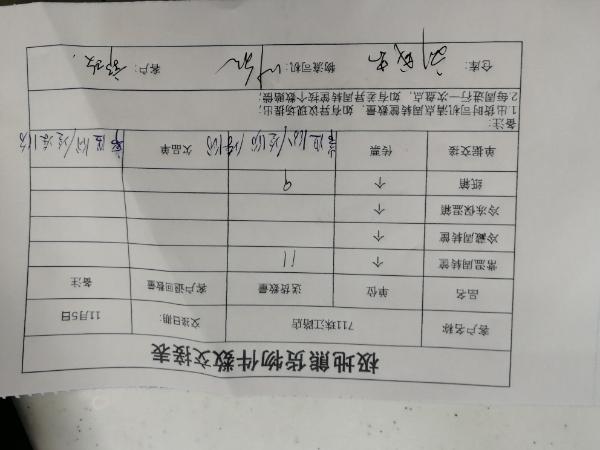 极地熊货物件数交接表
客户名称 711珠江路店 交接日期: 11月5日
品名 单位 送货数量 客户退回数量 备注
常温周转筐 个 11
冷藏周转筐 个
冷冻保温箱 个
纸箱 个 9
单据交接 传票 欠品单
备注:
1.出货时司机清点周转筐数量,如有异议现场提出;
2.每周进行一次盘点,如有差异周转筐按个数赔偿;
仓库: 物流司机: 客户: